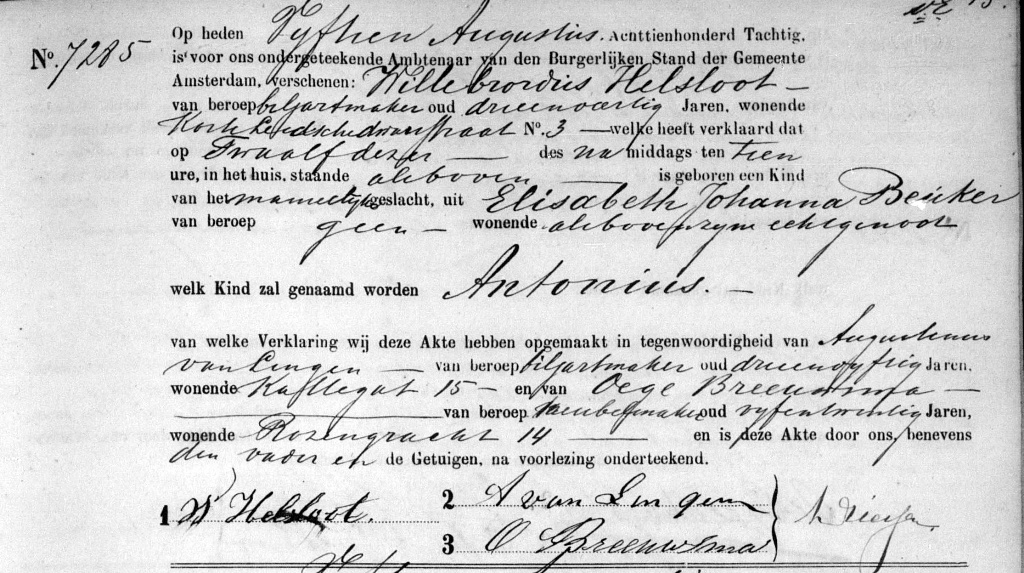 No. 7285
Op heden Vyftien Augustus. Achttienhonderd Tachtig,
is voor ons ondergeteekende Ambtenaar van den Burgerlijken Stand der Gemeente
Amsterdam, verschenen: Willebrordus Helsloot —
van beroep biljartmaker oud drieenveertig Jaren, wonende
Korte Leidschedwarsstraat No. 3 — welke heeft verklaard dat
op Twaalf dezer — des na middags ten tien
ure, in het huis, staande alsboven — is geboren een Kind
van het mannelijk geslacht, uit Elisabeth Johanna Beuker
van beroep geen — wonende alsboven zyne echtgenoot
welk Kind zal genaamd worden Antonius. —
van welke Verklaring wij deze Akte hebben opgemaakt in tegenwoordigheid van Augustinus
van Lingen — van beroep biljartmaker oud drieenvyftig Jaren,
wonende Kattegat 15 — en van Oege Breeuwsma —
— van beroep meubelmaker oud vyfentwintig Jaren,
wonende Rozengracht 14 — en is deze Akte door ons, benevens
den vader en de Getuigen, na voorlezing onderteekend.
1 W Helsloot.
2 A van Lingen
3 O Breeuwsma